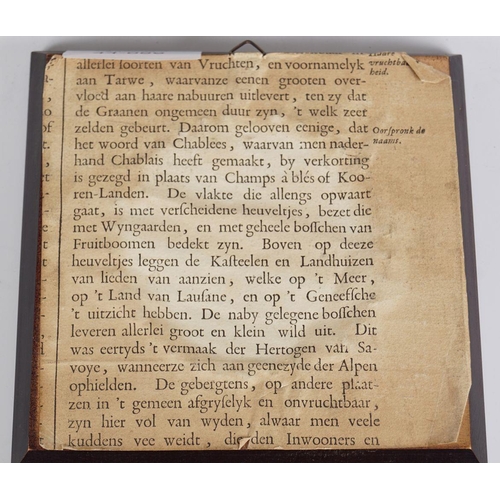 allerlei ſoorten van Vruchten, en voornamelyk
aan Tarwe, waarvanze eenen grooten over-
vloed aan haare nabuuren uitlevert, ten zy dat
de Graanen ongemeen duur zyn, 't welk zeer
zelden gebeurt. Daarom gelooven eenige, dat
het woord van Chablées, waarvan men nader-
hand Chablais heeft gemaakt, by verkorting
is gezegd in plaats van Champs à blés of Koo-
ren-Landen. De vlakte die allengs opwaart
gaat, is met verſcheidene heuveltjes, bezet die
met Wyngaarden, en met geheele boſſchen van
Fruitboomen bedekt zyn. Boven op deeze
heuveltjes leggen de Kaſteelen en Landhuizen
van lieden van aanzien, welke op 't Meer,
op 't Land van Lauſane, en op 't Geneefſche
't uitzicht hebben. De naby gelegene boſſchen
leveren allerlei groot en klein wild uit. Dit
was eertyds 't vermaak der Hertogen van Sa-
voye, wanneerze zich aan geenezyde der Alpen
ophielden. De gebergtens, op andere plaat-
zen in 't gemeen afgryſelyk en onvruchtbaar,
zyn hier vol van wyden, alwaar men veele
kuddens vee weidt, die den Inwooners en
vruchtba
heid.
Oorſpronk de
naams.